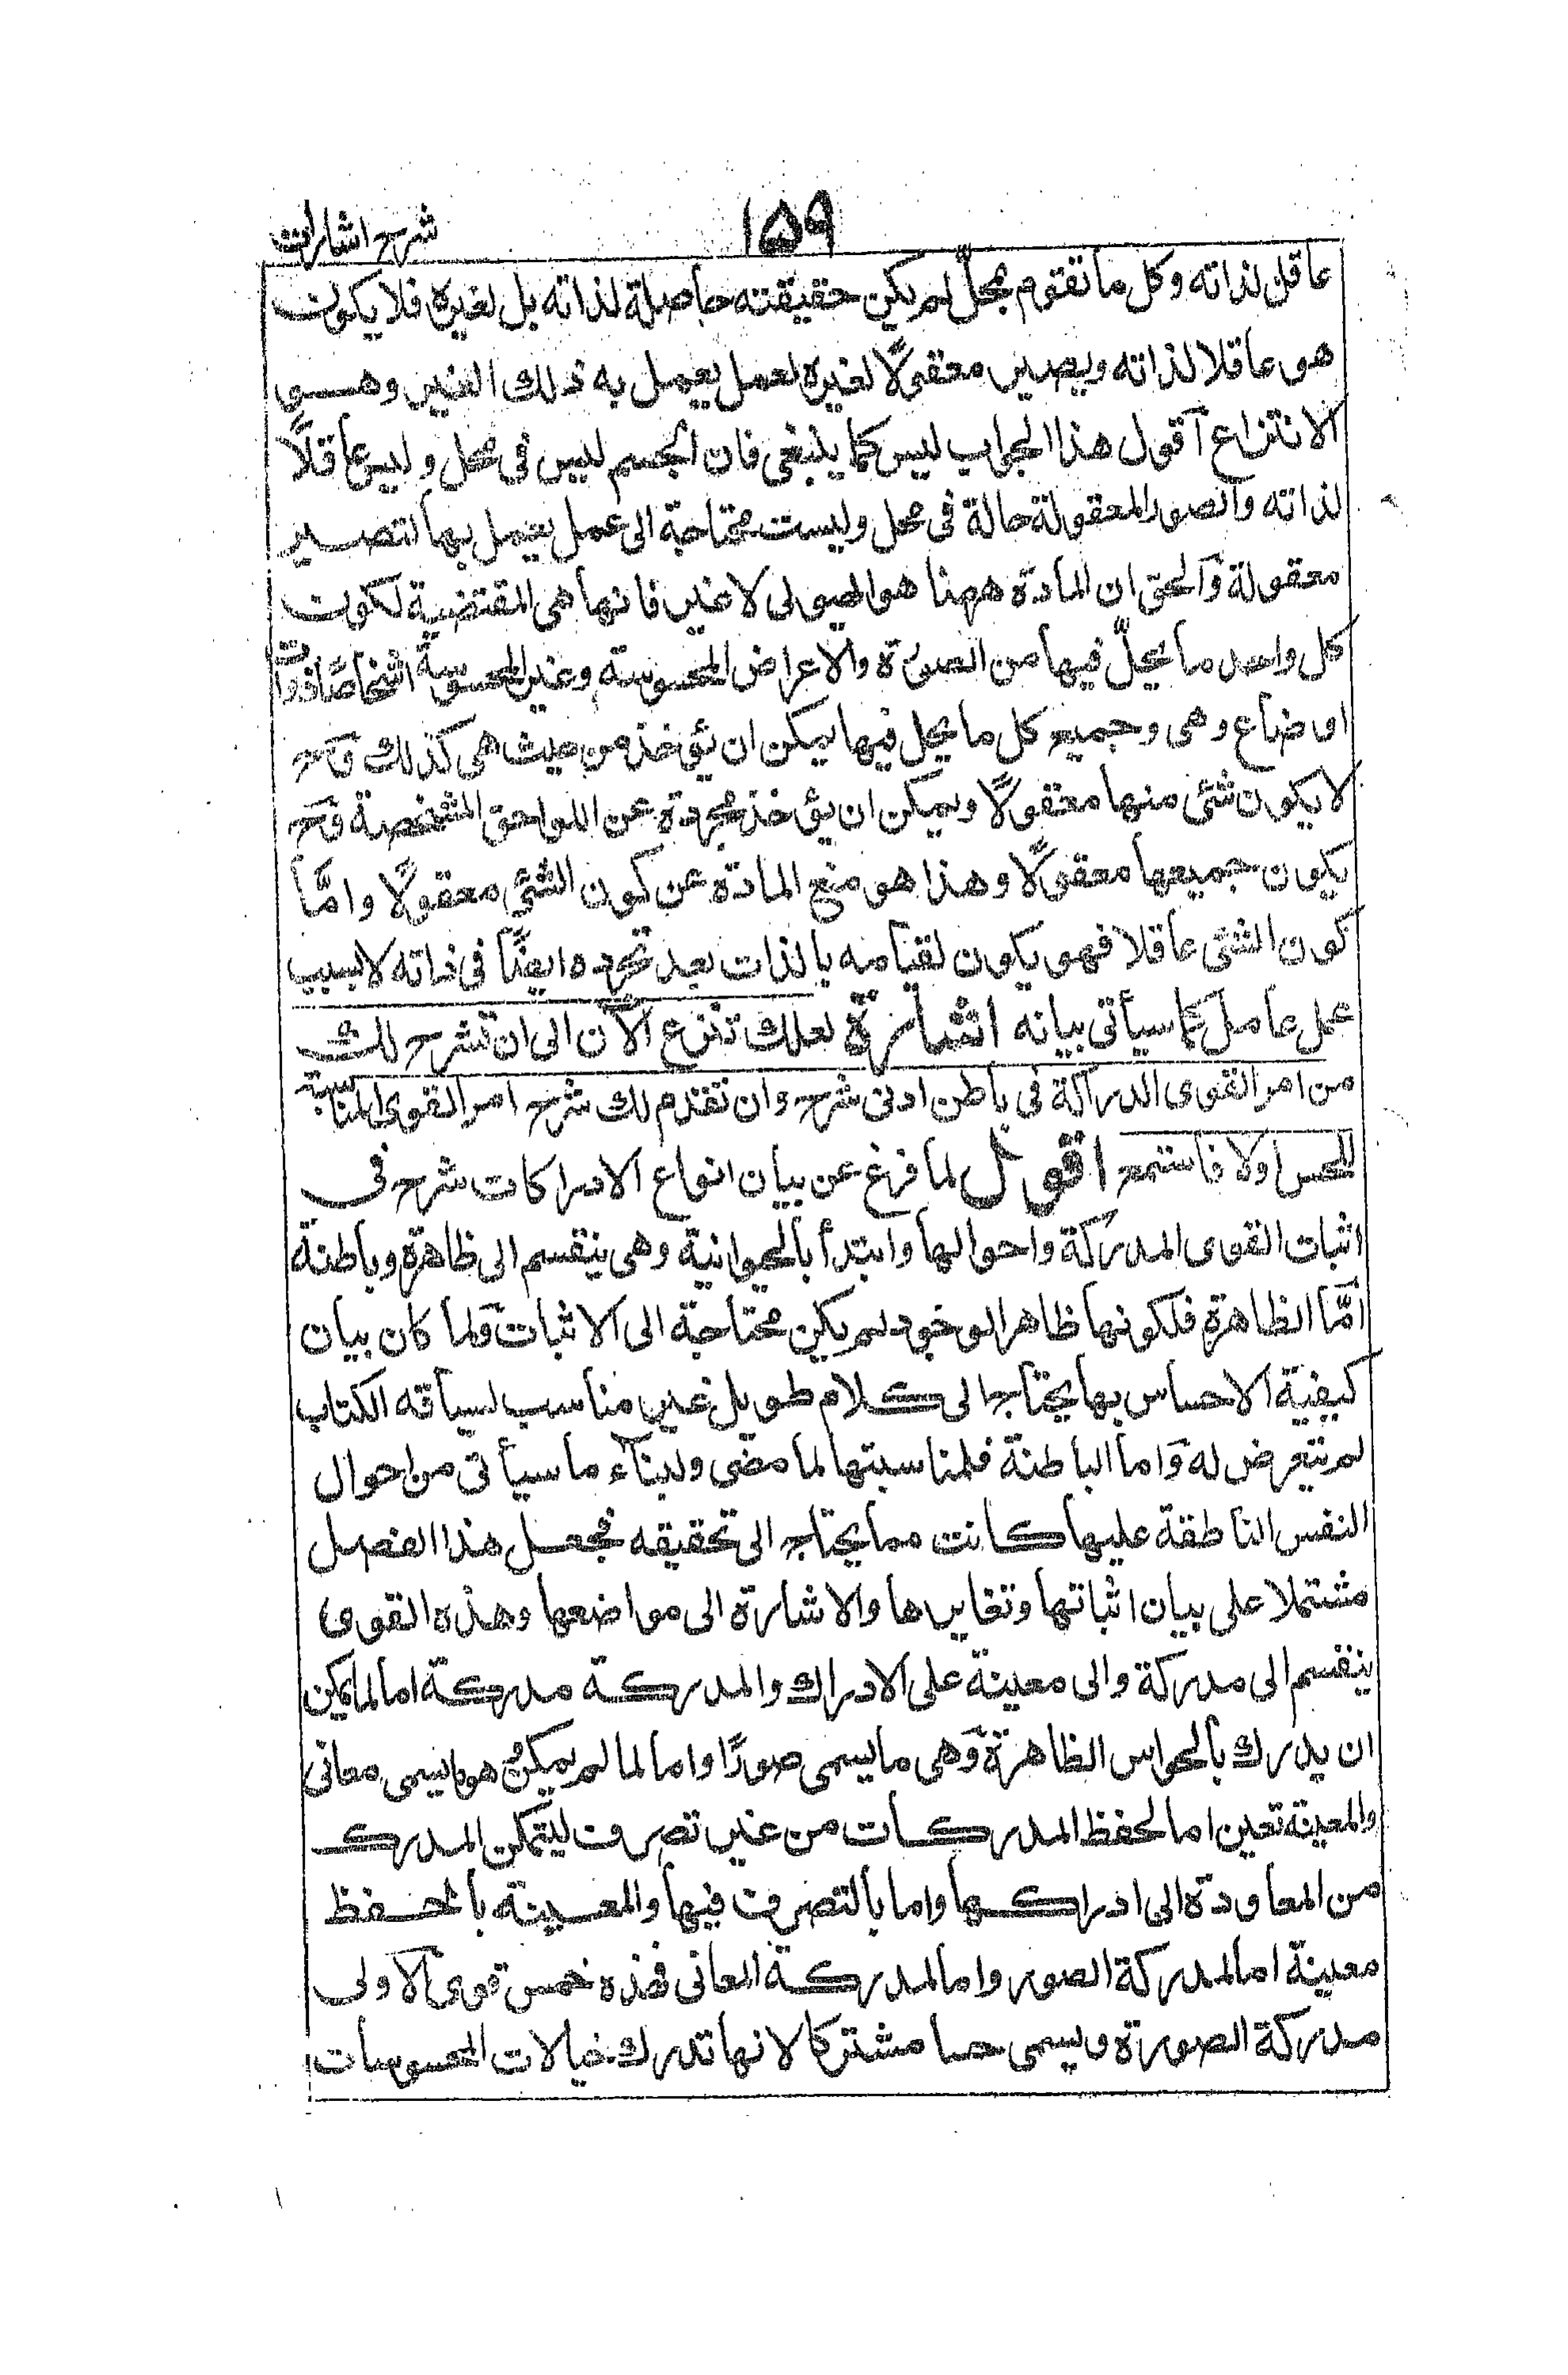 ۱۵۹
شرح اشارات
عاقل لذاته وكل ما تقوم بمحل لم يكن حقيقته حاصلة لذاته بل لغيره فلا يكون
هو عاقلا لذاته ويصير معقولًا لغيره لعمل يعمل به ذلك الغير وهو
الانتزاع آقول هذا الجواب ليس كما ينبغى فان الجسم ليس فى محل وليس عاقلًا
لذاته والصور المعقولة حالة فى محل وليست محتاجة الى عمل يعمل بها لتصير
معقولة وآلحق ان المادة ههنا هو الهيولى لا غير فانها هى المقتضية لكون
كل واحد ما يحلّ فيها من الصورة والاعراض المحسوسة وغير المحسوسة اشخاصًا ذوات
اوضاع وهى وجميع كل ما يحل فيها يمكن ان يؤخذ من حيث هى كذلك وآح
لا يكون شئ منها معقولًا ويمكن ان يؤخذ مجردة عن اللواحق المشخصة وآح
يكون جميعها معقولًا وهذا هو منع المادة عن كون الشئ معقولًا وامَّا
كون الشئ عاقلا فهو يكون لقيامه بالذات بعد تجرده ايضًا فى ذاته لا بسبب
عمل عامل كما سيأتى بيانه اشارة لعلك تنزع الآن الى ان تشرح لك
من امر القوى الدراكة فى باطن ادنى شرح وان تقدم لك شرح امر القوى المناسبة
للحس اولا فاستمع اقول لما فرغ عن بيان انواع الادراكات شرح فى
اثبات القوى المدركة واحوالها وابتدأ بالحيوانية وهى ينقسم الى ظاهرة وباطنة
امّا الظاهرة فلكونها ظاهر الوجود لم يكن محتاجة الى الاثبات ولما كان بيان
كيفية الاحساس بها يحتاج الى كلام طويل غير مناسب لسياقه الكتاب
لم تتعرض له وآما الباطنة فلمناسبتها لما مضى ولبناء ما سيأتى من احوال
النفس الناطقة عليها كانت مما يحتاج الى تحقيقه فجعل هذا الفصل
مشتملا على بيان اثباتها وتغايرها والاشارة الى مواضعها وهذه القوى
ينقسم الى مدركة والى معينة على الادراك والمدركة مدركة اما لما يمكن
ان يدرك بالحواس الظاهرة وهى ما يسمى صورًا واما لما لم يمكن هو ما يسمى معانى
والمعينة تعين اما لحفظ المدركات من غير تصرف ليتمكن المدرك
من المعاودة الى ادراكها واما بالتصرف فيها والمعينة بالحفظ
معينة اما لمدركة الصور واما لمدركة المعانى فهذه خمس قوى الاولى
مدركة الصورة ويسمى حسا مشتركا لانها تدرك خيالات المحسوسات